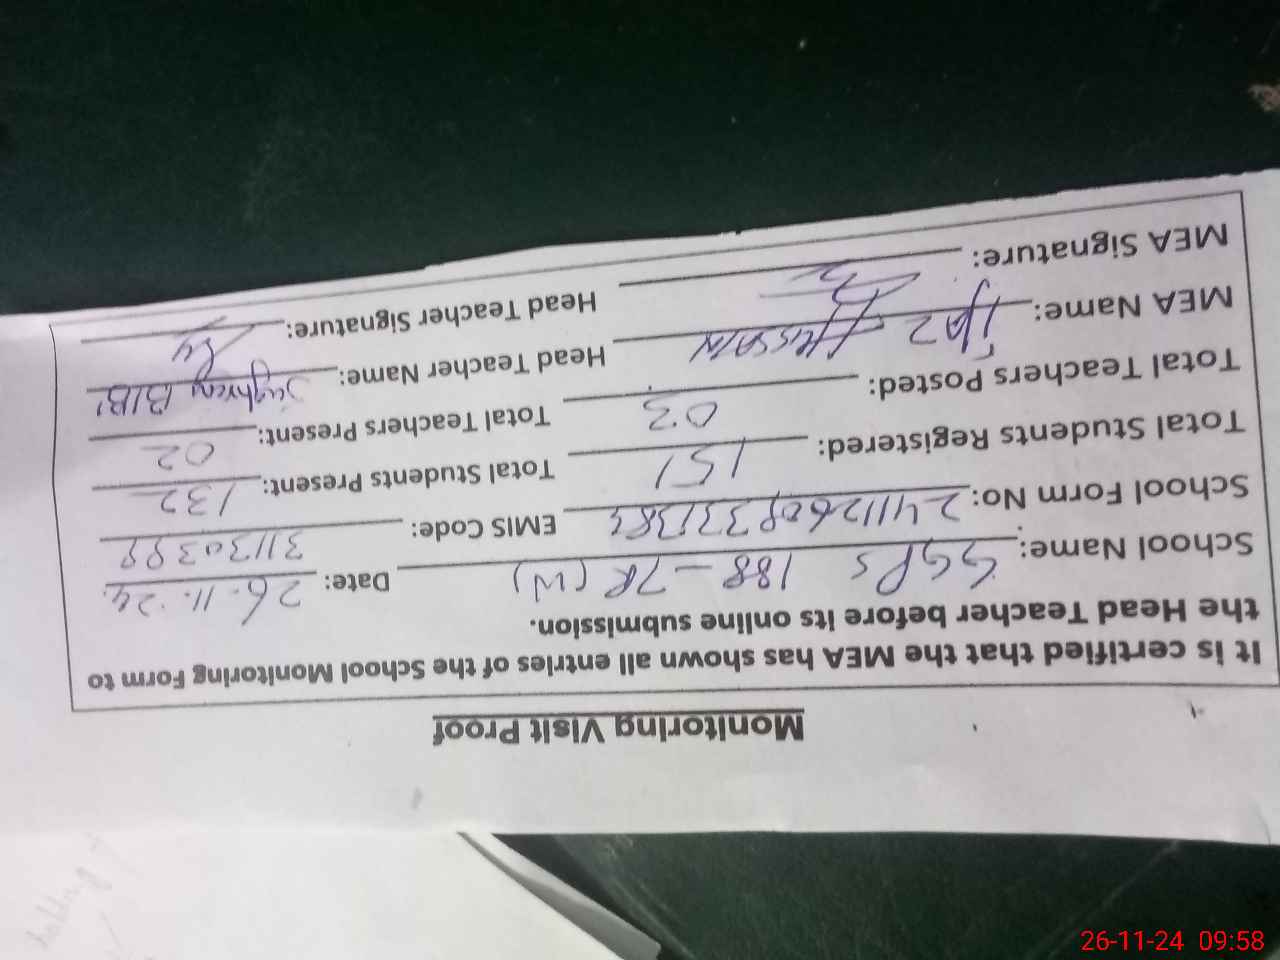 Monitoring Visit Proof
It is certified that the MEA has shown all entries of the School Monitoring Form to
the Head Teacher before its online submission.
School Name: GGPS 188-7R (W) Date: 26.11.24
School Form No: EMIS Code:
Total Students Registered: 151 Total Students Present: 132
Total Teachers Posted: 03 Total Teachers Present: 02
MEA Name: HUSSAIN Head Teacher Name: BIBI
MEA Signature: Head Teacher Signature:
26-11-24 09:58